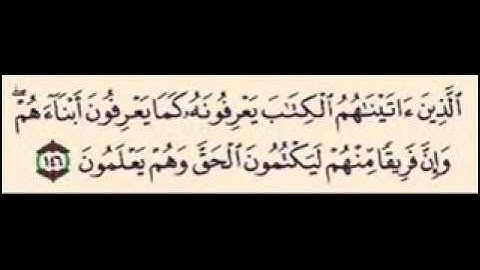 ٱلَّذِينَ ءَاتَيْنَٰهُمُ ٱلْكِتَٰبَ يَعْرِفُونَهُۥ كَمَا يَعْرِفُونَ أَبْنَآءَهُمْ ۖ
وَإِنَّ فَرِيقًا مِّنْهُمْ لَيَكْتُمُونَ ٱلْحَقَّ وَهُمْ يَعْلَمُونَ ١٤٦